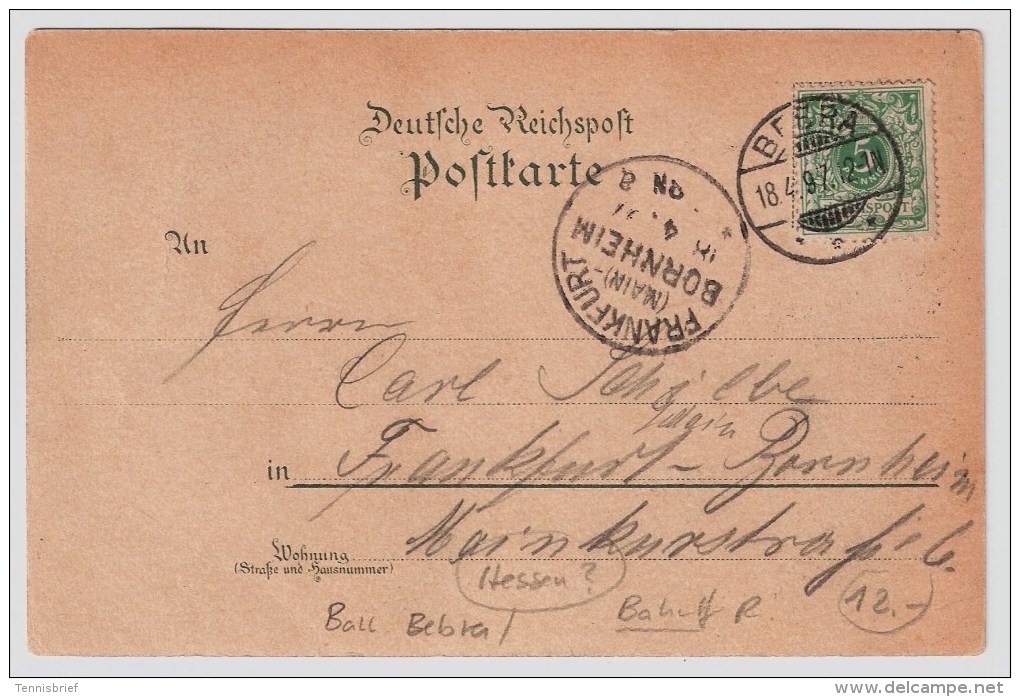 Deutsche Reichspost
Postkarte
BEBRA
18.4.97.12-1N
5
FRANKFURT
(MAIN)-
BORNHEIM
4
8 N
An
Herrn
Carl
(Main)
in Frankfurt-Bornheim
Mainkurstraße 6.
Wohnung
(Straße und Hausnummer)
Hessen?
Ball Bebra!
12.-
Tennisbrief
www.delcampe.net